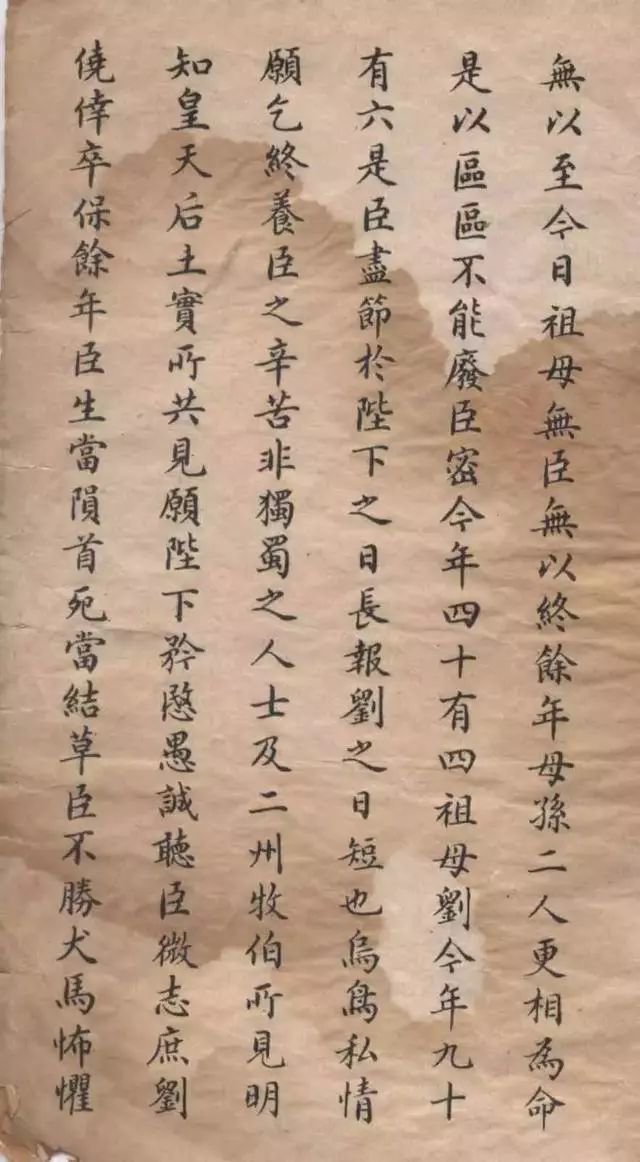 無以至今日祖母無臣無以終餘年母孫二人更相為命
是以區區不能廢臣密今年四十有四祖母劉今年九十
有六是臣盡節於陛下之日長報劉之日短也烏鳥私情
願乞終養臣之辛苦非獨蜀之人士及二州牧伯所見明
知皇天后土實所共見願陛下矜愍愚誠聽臣微志庶劉
僥倖卒保餘年臣生當隕首死當結草臣不勝犬馬怖懼